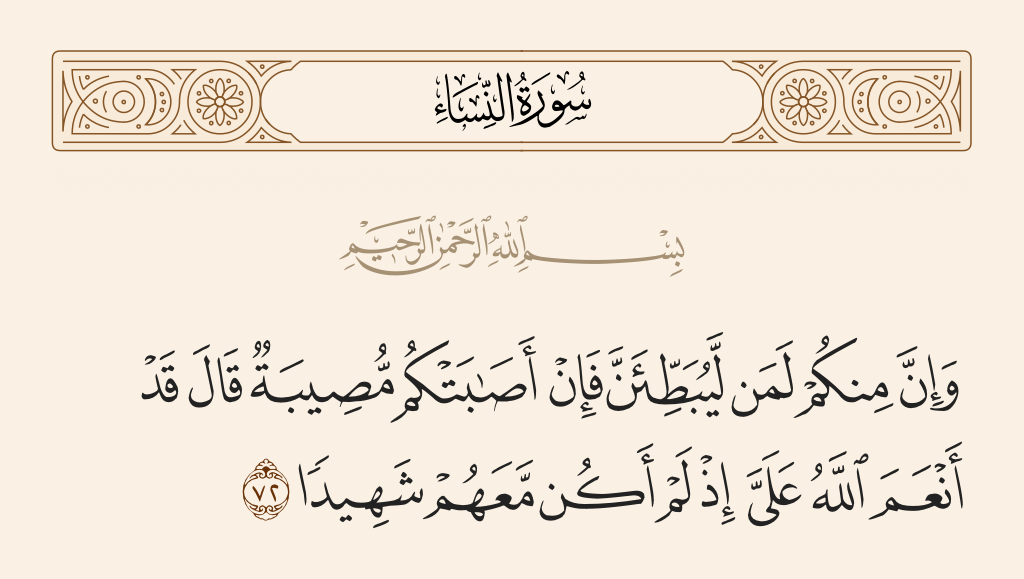 سُورَةُ النِّسَاءِ
بِسْمِ ٱللَّهِ ٱلرَّحْمَٰنِ ٱلرَّحِيمِ
وَإِنَّ مِنكُمْ لَمَن لَّيُبَطِّئَنَّ فَإِنْ أَصَٰبَتْكُم مُّصِيبَةٌ قَالَ قَدْ
أَنْعَمَ ٱللَّهُ عَلَىَّ إِذْ لَمْ أَكُن مَّعَهُمْ شَهِيدًا ٧٢